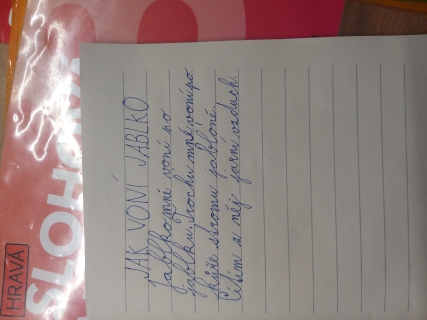 HRAVÁ
SLOHOV
JAK VONÍ JABLKO
Jablko mně voní po
jablku. Trochu mně voní po
kůře stromu jabloně.
Cítím z něj jarní vzduch.